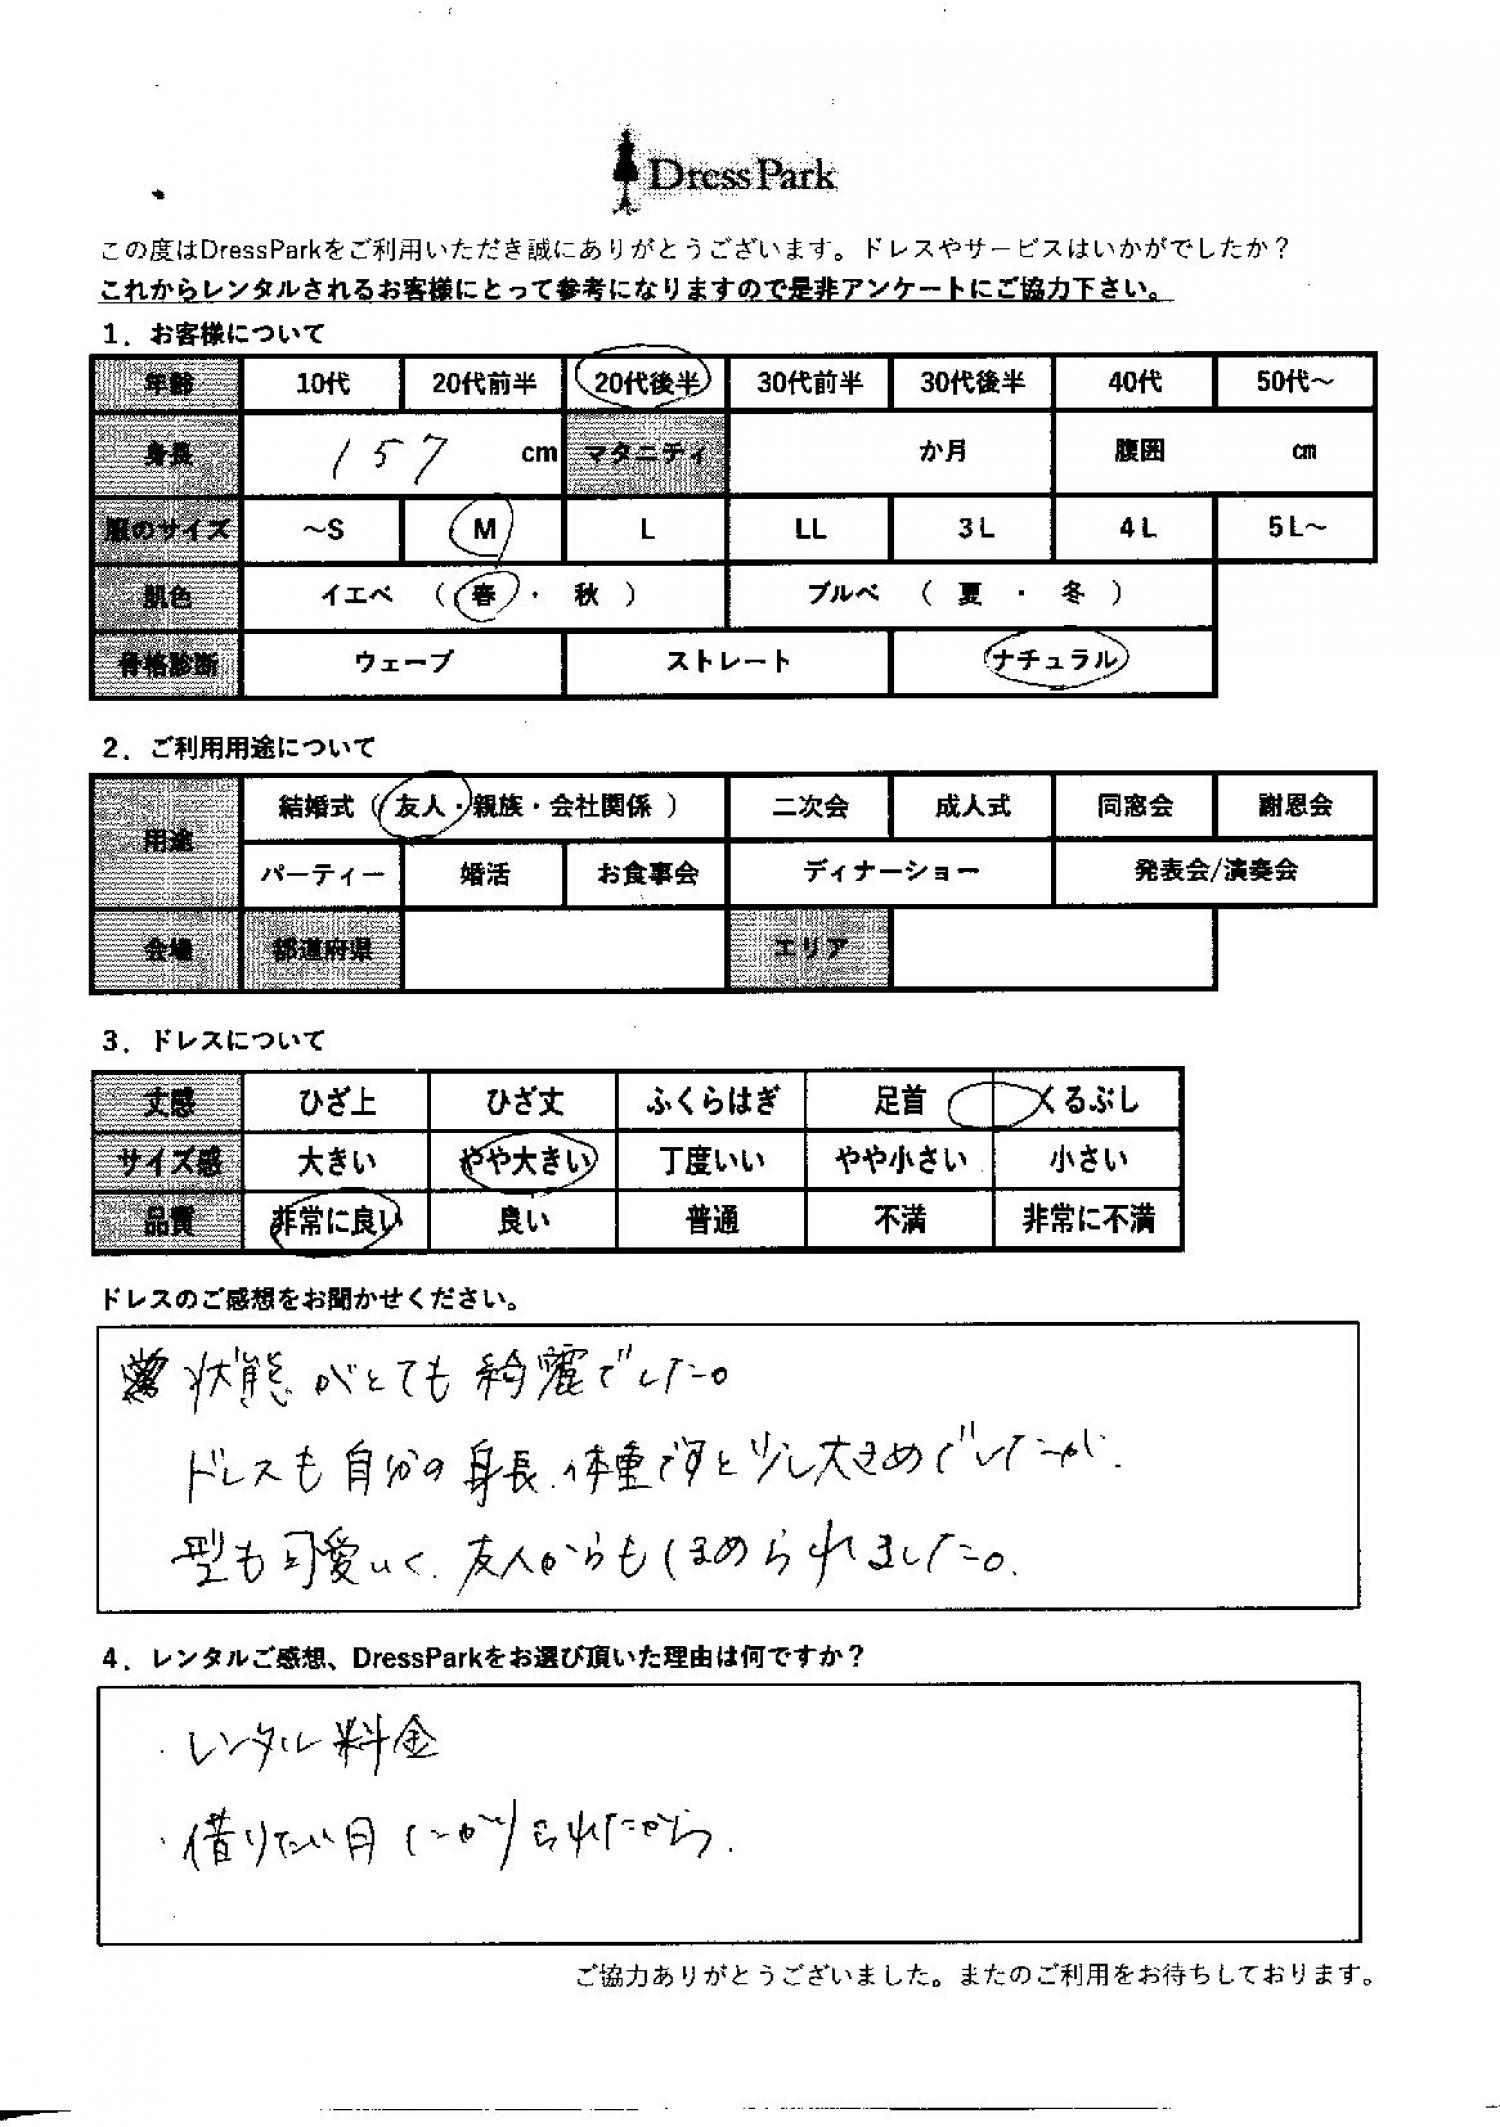 DressPark
この度はDressParkをご利用いただき誠にありがとうございます。ドレスやサービスはいかがでしたか？
これからレンタルされるお客様にとって参考になりますので是非アンケートにご協力下さい。
1．お客様について
年齢 10代 20代前半 20代後半 30代前半 30代後半 40代 50代～
身長 157 cm マタニティ か月 腹囲 cm
服のサイズ ～S M L LL 3L 4L 5L～
肌色 イエベ （ 春 ・ 秋 ） ブルベ （ 夏 ・ 冬 ）
骨格診断 ウェーブ ストレート ナチュラル
2．ご利用用途について
用途 結婚式（ 友人・親族・会社関係 ） 二次会 成人式 同窓会 謝恩会
パーティー 婚活 お食事会 ディナーショー 発表会/演奏会
会場 都道府県 エリア
3．ドレスについて
丈感 ひざ上 ひざ丈 ふくらはぎ 足首 くるぶし
サイズ感 大きい やや大きい 丁度いい やや小さい 小さい
品質 非常に良い 良い 普通 不満 非常に不満
ドレスのご感想をお聞かせください。
状態がとても綺麗でした。
ドレスも自分の身長、体重ですと少し大きめでしたが、
型も可愛いく、友人からもほめられました。
4．レンタルご感想、DressParkをお選び頂いた理由は何ですか？
・レンタル料金
・借りたい日にかりられたから.
ご協力ありがとうございました。またのご利用をお待ちしております。